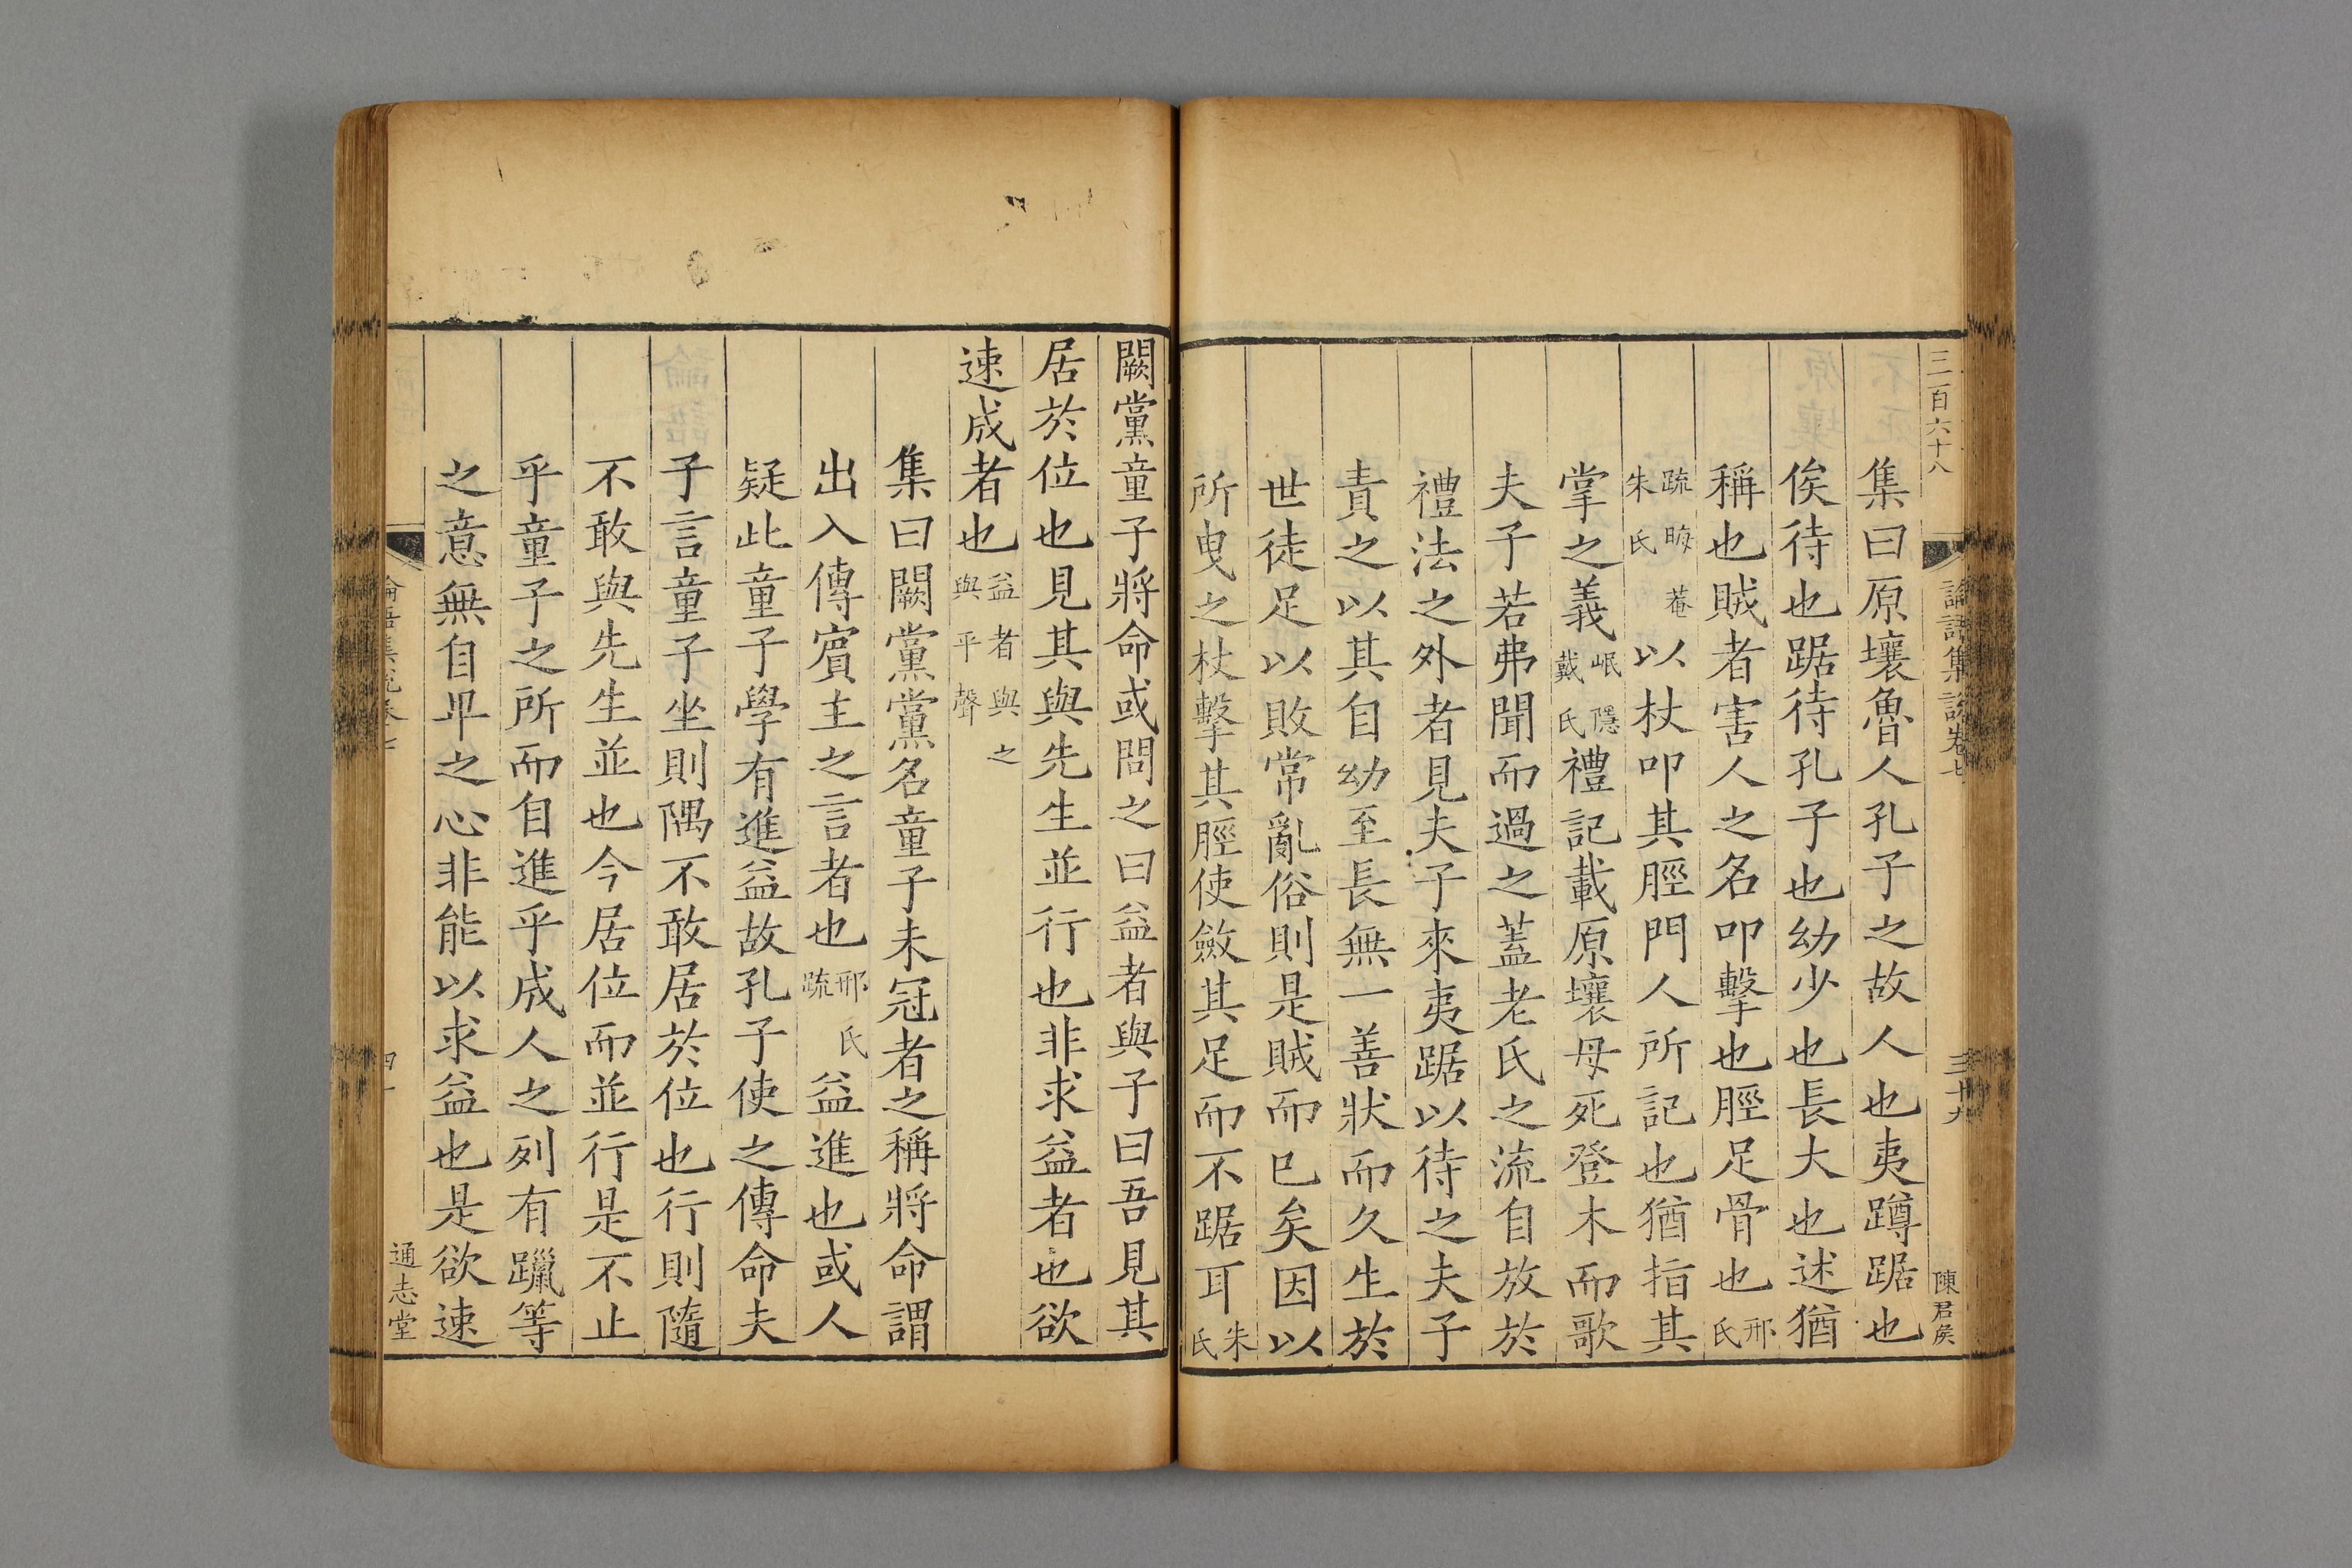 三百六十八
論語集說卷七
三十九
陳君侯
集曰原壤魯人孔子之故人也夷蹲踞也
俟待也踞待孔子也幼少也長大也述猶
稱也賊者害人之名叩擊也脛足骨也邢氏
疏晦菴朱氏以杖叩其脛門人所記也猶指其
掌之義岷隱戴氏禮記載原壤母死登木而歌
夫子若弗聞而過之蓋老氏之流自放於
禮法之外者見夫子來夷踞以待之夫子
責之以其自幼至長無一善狀而久生於
世徒足以敗常亂俗則是賊而已矣因以
所曳之杖擊其脛使斂其足而不踞耳朱氏
闕黨童子將命或問之曰益者與子曰吾見其
居於位也見其與先生並行也非求益者也欲
速成者也益者與之與平聲
集曰闕黨黨名童子未冠者之稱將命謂
出入傳賓主之言者也邢氏疏益進也或人
疑此童子學有進益故孔子使之傳命夫
子言童子坐則隅不敢居於位也行則隨
不敢與先生並也今居位而並行是不止
乎童子之所而自進乎成人之列有躐等
之意無自卑之心非能以求益也是欲速
論語集說卷七
通志堂